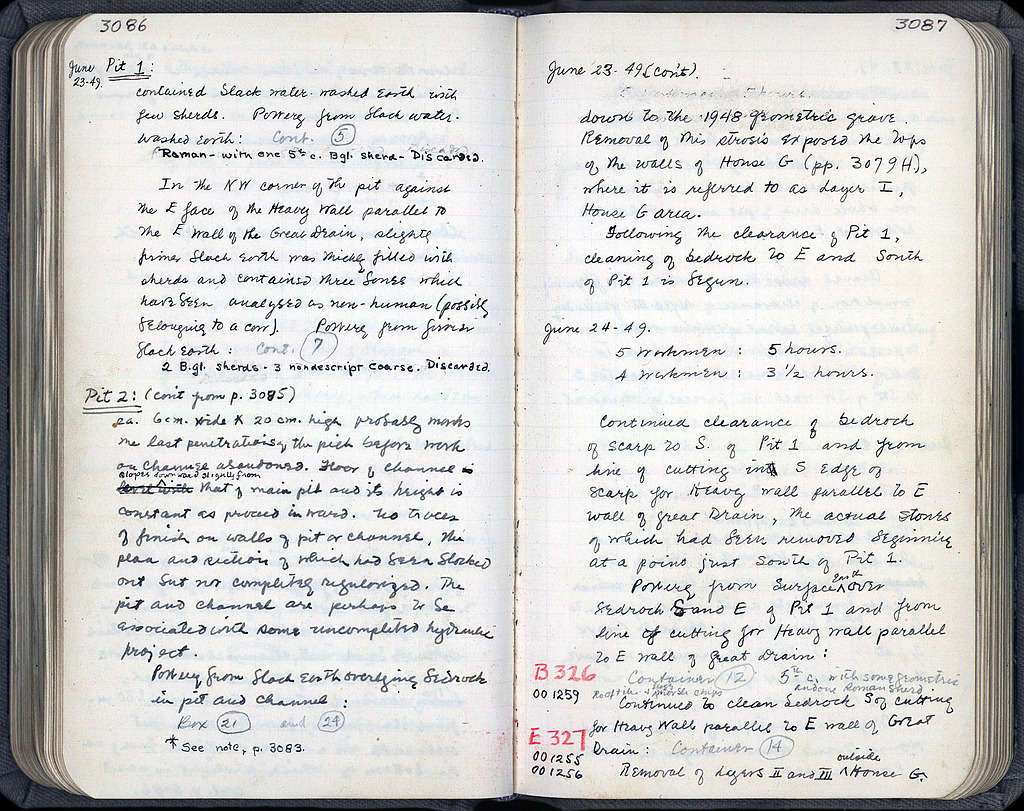 3086
June 23-49.
Pit 1:
contained black water-washed earth with
few sherds. Pottery from black water-
washed earth: Cont. (5)
Roman - with one 5th c. Bgl. sherd - Discarded.
In the NW corner of the pit against
the E face of the Heavy Wall parallel to
the E wall of the Great Drain, slightly
firmer black earth was thickly filled with
sherds and contained three bones which
have been analysed as non-human (possibly
belonging to a cow). Pottery from firmer
black earth: Cont. (7)
2 B.gl. sherds - 3 nondescript coarse. Discarded.
Pit 2: (cont from p. 3085)
ca. 6cm. wide x 20 cm. high probably marks
the last penetration of the pick before work
on channel abandoned. Floor of channel
slopes downward slightly from
level with that of main pit and its height is
constant as proceed inward. No traces
of finish on walls of pit or channel, the
plan and section of which had been blocked
out but not completely regularized. The
pit and channel are perhaps to be
associated with some uncompleted hydraulic
project.
Pottery from black earth overlying bedrock
in pit and channel:
Box (21) and (24)
* See note, p. 3083.
3087
June 23-49 (con't).
down to the 1948 geometric grave.
Removal of this strosis exposed the tops
of the walls of House G (pp. 3079 ff),
where it is referred to as Layer I,
House G area.
Following the clearance of Pit 1,
cleaning of bedrock to E and South
of Pit 1 is begun.
June 24-49.
5 Workmen: 5 hours.
4 Workmen: 3 1/2 hours.
Continued clearance of bedrock
of scarp to S. of Pit 1 and from
line of cutting in S edge of
scarp for Heavy wall parallel to E
wall of Great Drain, the actual stones
of which had been removed beginning
at a point just South of Pit 1.
Pottery from surface earth over
bedrock S and E of Pit 1 and from
line of cutting for Heavy wall parallel
to E wall of Great Drain:
B 326
Container (12) 5th c. with some geometric
and one Roman sherd
001259
Rooftile + floor mosaic chips
Continued to clean bedrock S of cutting
for Heavy Wall parallel to E wall of Great
E 327
Drain: Container (14)
001255
001256
Removal of Layers II and III outside House G.